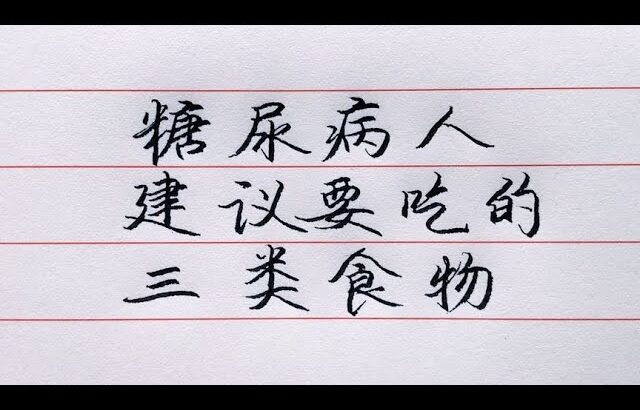 糖尿病人
建议要吃的
三类食物